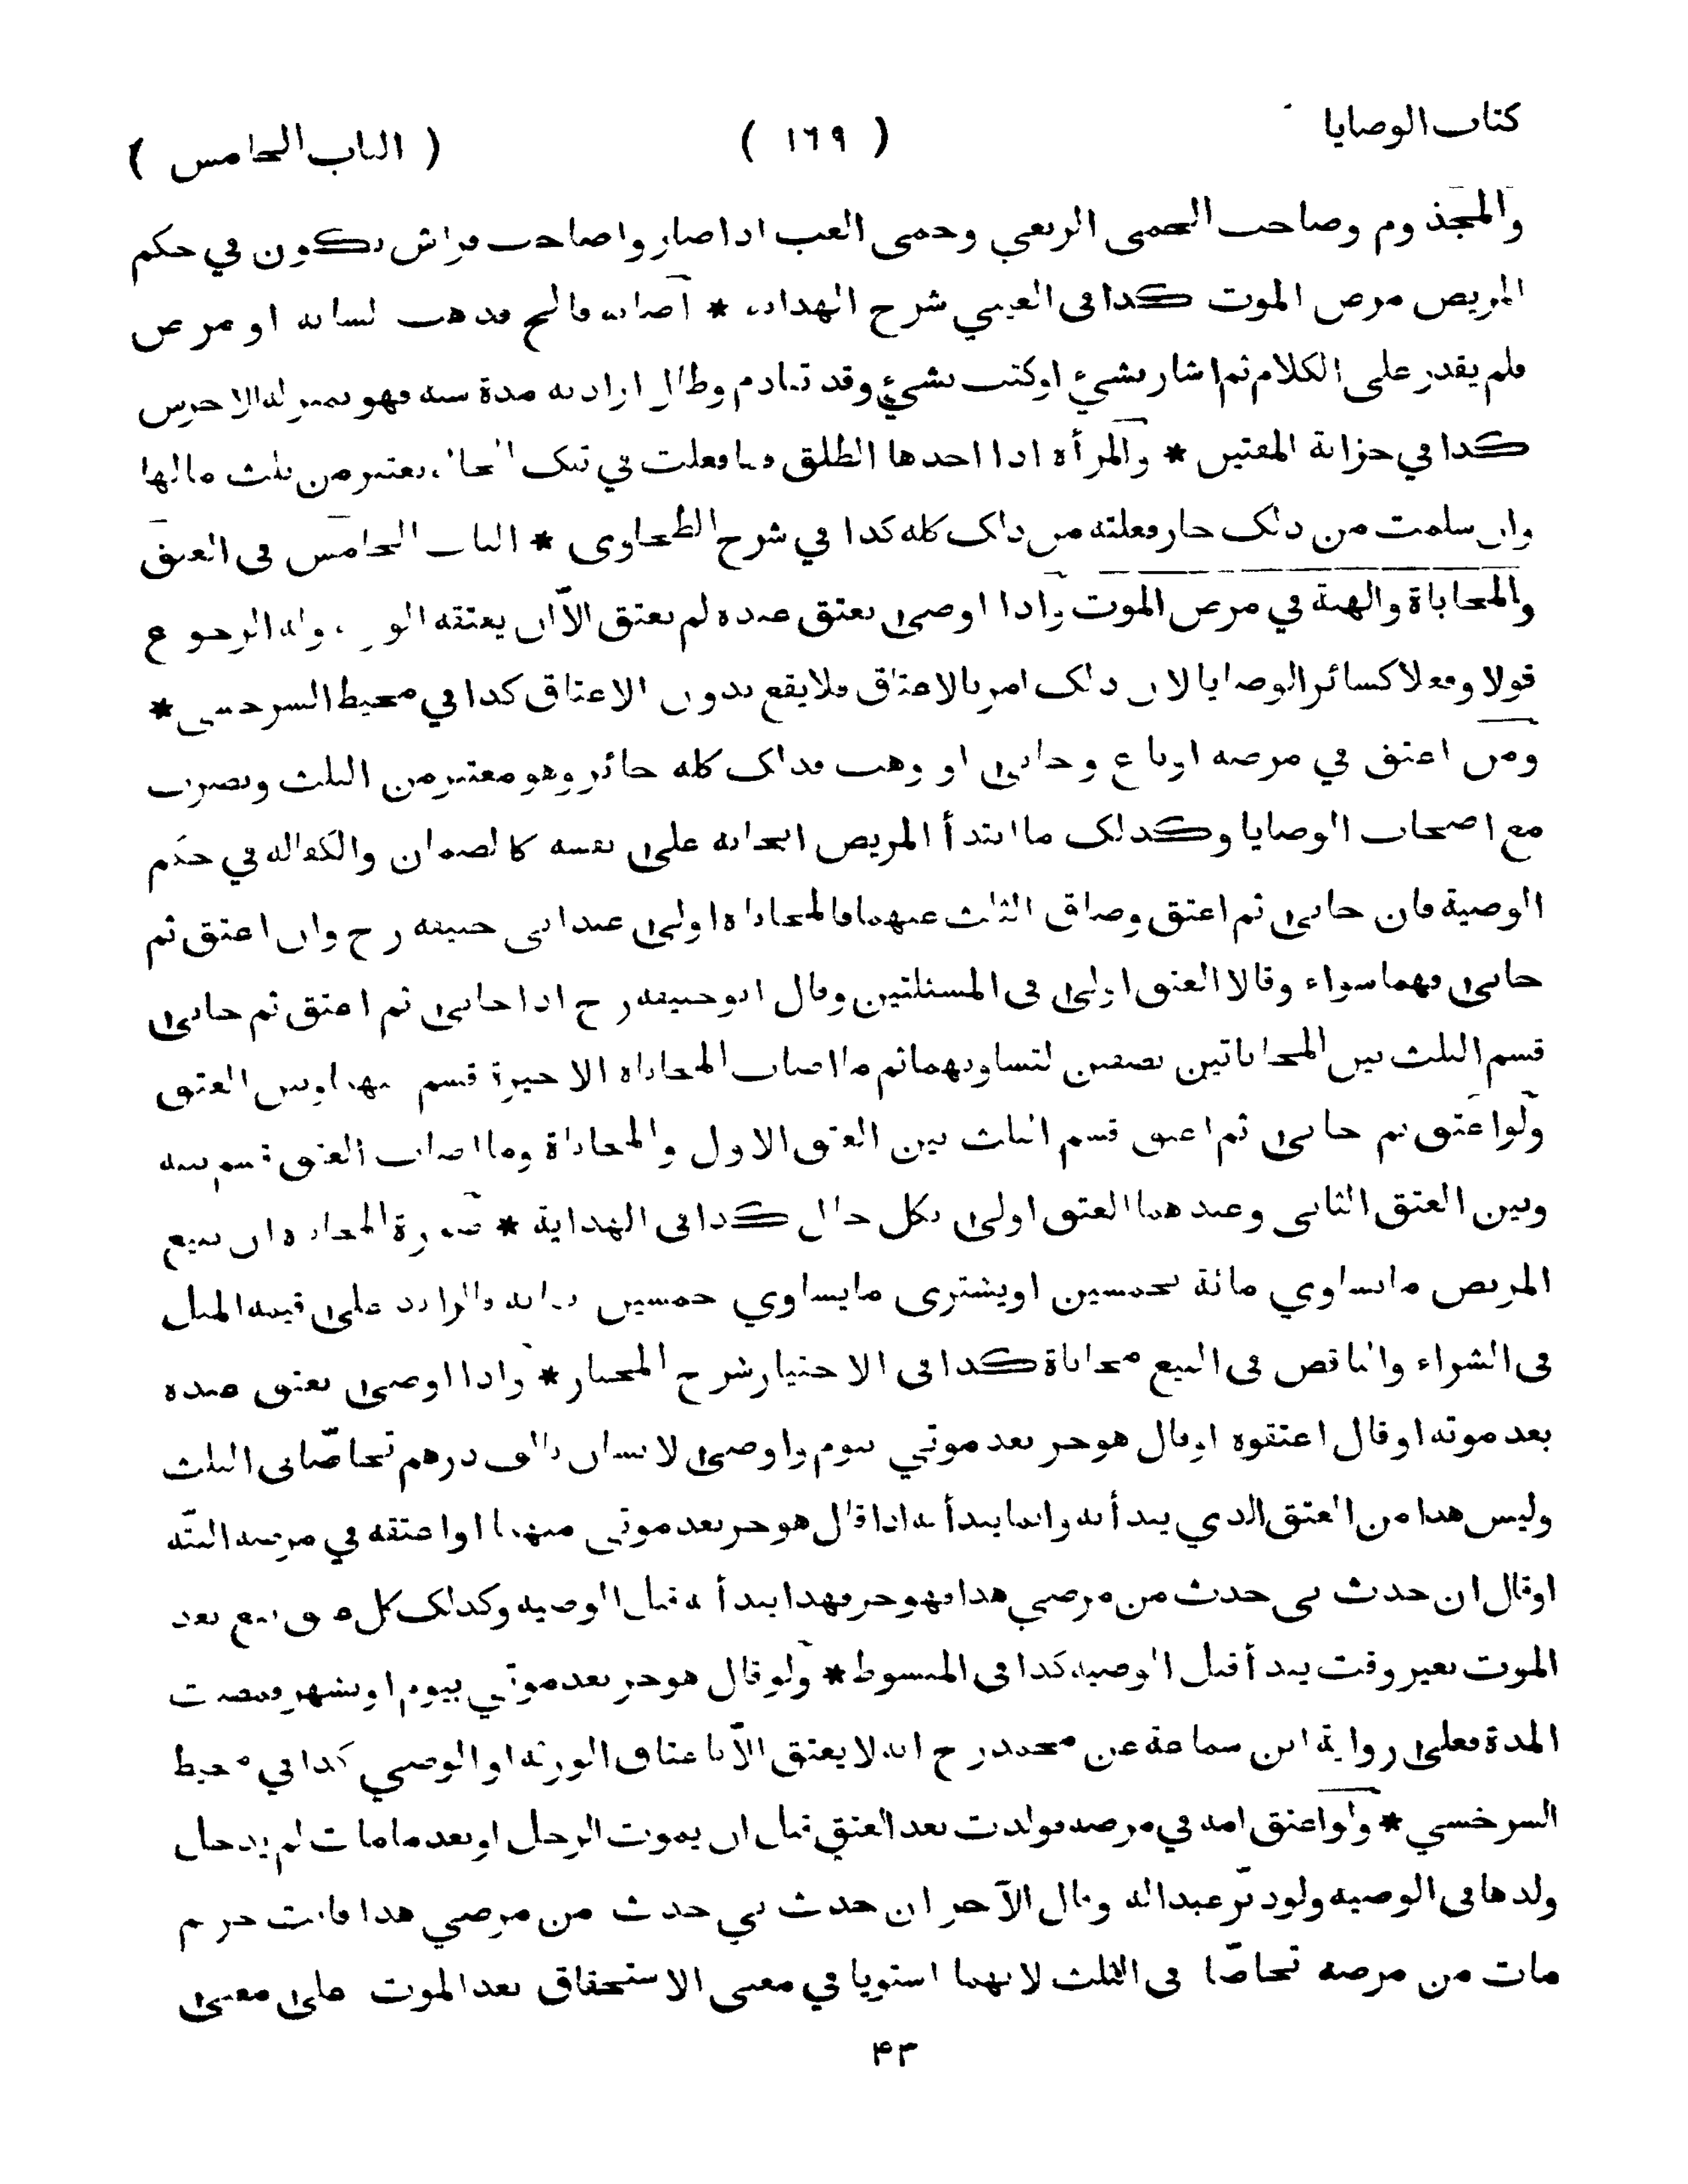 كتاب الوصايا ( ١٦٩ ) ( الباب الخامس )
والمجذوم وصاحب الحمى الربعي وحمى الغب اذا صاروا صاحب فراش يكون في حكم
المريض مرض الموت كذا في العيني شرح الهداية * اصابه فالج فذهب لسانه او مرض
فلم يقدر على الكلام ثم اشار بشيء او كتب بشيء وقد تقادم وطال اراد به مدة سنة فهو بمنزلة الاخرس
كذا في خزانة المفتين * والمرأة اذا اخذها الطلق فما فعلت في تلك الحالة يعتبر من ثلث مالها
وان سلمت من ذلك جاز ما فعلته من ذلك كله كذا في شرح الطحاوي * الباب الخامس في العتق
والمحاباة والهبة في مرض الموت واذا اوصى بعتق عبده لم يعتق الّا ان يعتقه وله الرجوع
قولا وفعلا كسائر الوصايا لان ذلك امر بالاعتاق فلا يقع بدون الاعتاق كذا في محيط السرخسي *
ومن اعتق في مرضه او باع وحابى او وهب فذلك كله جائز وهو معتبر من الثلث ويضرب
مع اصحاب الوصايا وكذلك ما ابتدأ المريض ايجابه على نفسه كالضمان والكفالة في حكم
الوصية فان حابى ثم اعتق وضاق الثلث عنهما فالمحاباة اولى عند ابي حنيفة رح وان اعتق ثم
حابى فهما سواء وقالا العتق اولى في المسئلتين وقال ابو حنيفة رح اذا حابى ثم اعتق ثم حابى
قسم الثلث بين المحاباتين نصفين لتساويهما ثم ما اصاب المحاباة الاخيرة قسم بينها وبين العتق
ولو اعتق ثم حابى ثم اعتق قسم الثلث بين العتق الاول والمحاباة وما اصاب العتق قسم بينه
وبين العتق الثاني وعندهما العتق اولى بكل حال كذا في الهداية * صورة المحاباة ان يبيع
المريض ما يساوي مائة بخمسين او يشتري ما يساوي خمسين بمائة فالزائد على قيمة المثل
في الشراء والناقص في البيع محاباة كذا في الاختيار شرح المختار * واذا اوصى بعتق عبده
بعد موته او قال اعتقوه او قال هو حر بعد موتي بيوم واوصى لانسان بالف درهم تحاصّا في الثلث
وليس هذا من العتق الذي يبدأ به وانما يبدأ به اذا قال هو حر بعد موتي مبهما او اعتقه في مرضه البتّة
او قال ان حدث بي حدث من مرضي هذا فهو حر فهذا يبدأ به قبل الوصية وكذلك كل عتق يقع بعد
الموت بغير وقت يبدأ قبل الوصية كذا في المبسوط * ولو قال هو حر بعد موتي بيوم او بشهر فمضت
المدة فعلى رواية ابن سماعة عن محمد رح انه لا يعتق الّا باعتاق الورثة او الوصي كذا في محيط
السرخسي * ولو اعتق امه في مرضه فولدت بعد العتق قبل ان يموت الرجل او بعد ما مات لم يدخل
ولدها في الوصية ولو دبّر عبدا له وقال الآخر ان حدث بي حدث من مرضي هذا فانت حر ثم
مات من مرضه تحاصّا في الثلث لانهما استويا في معنى الاستحقاق بعد الموت على معنى
٤٣